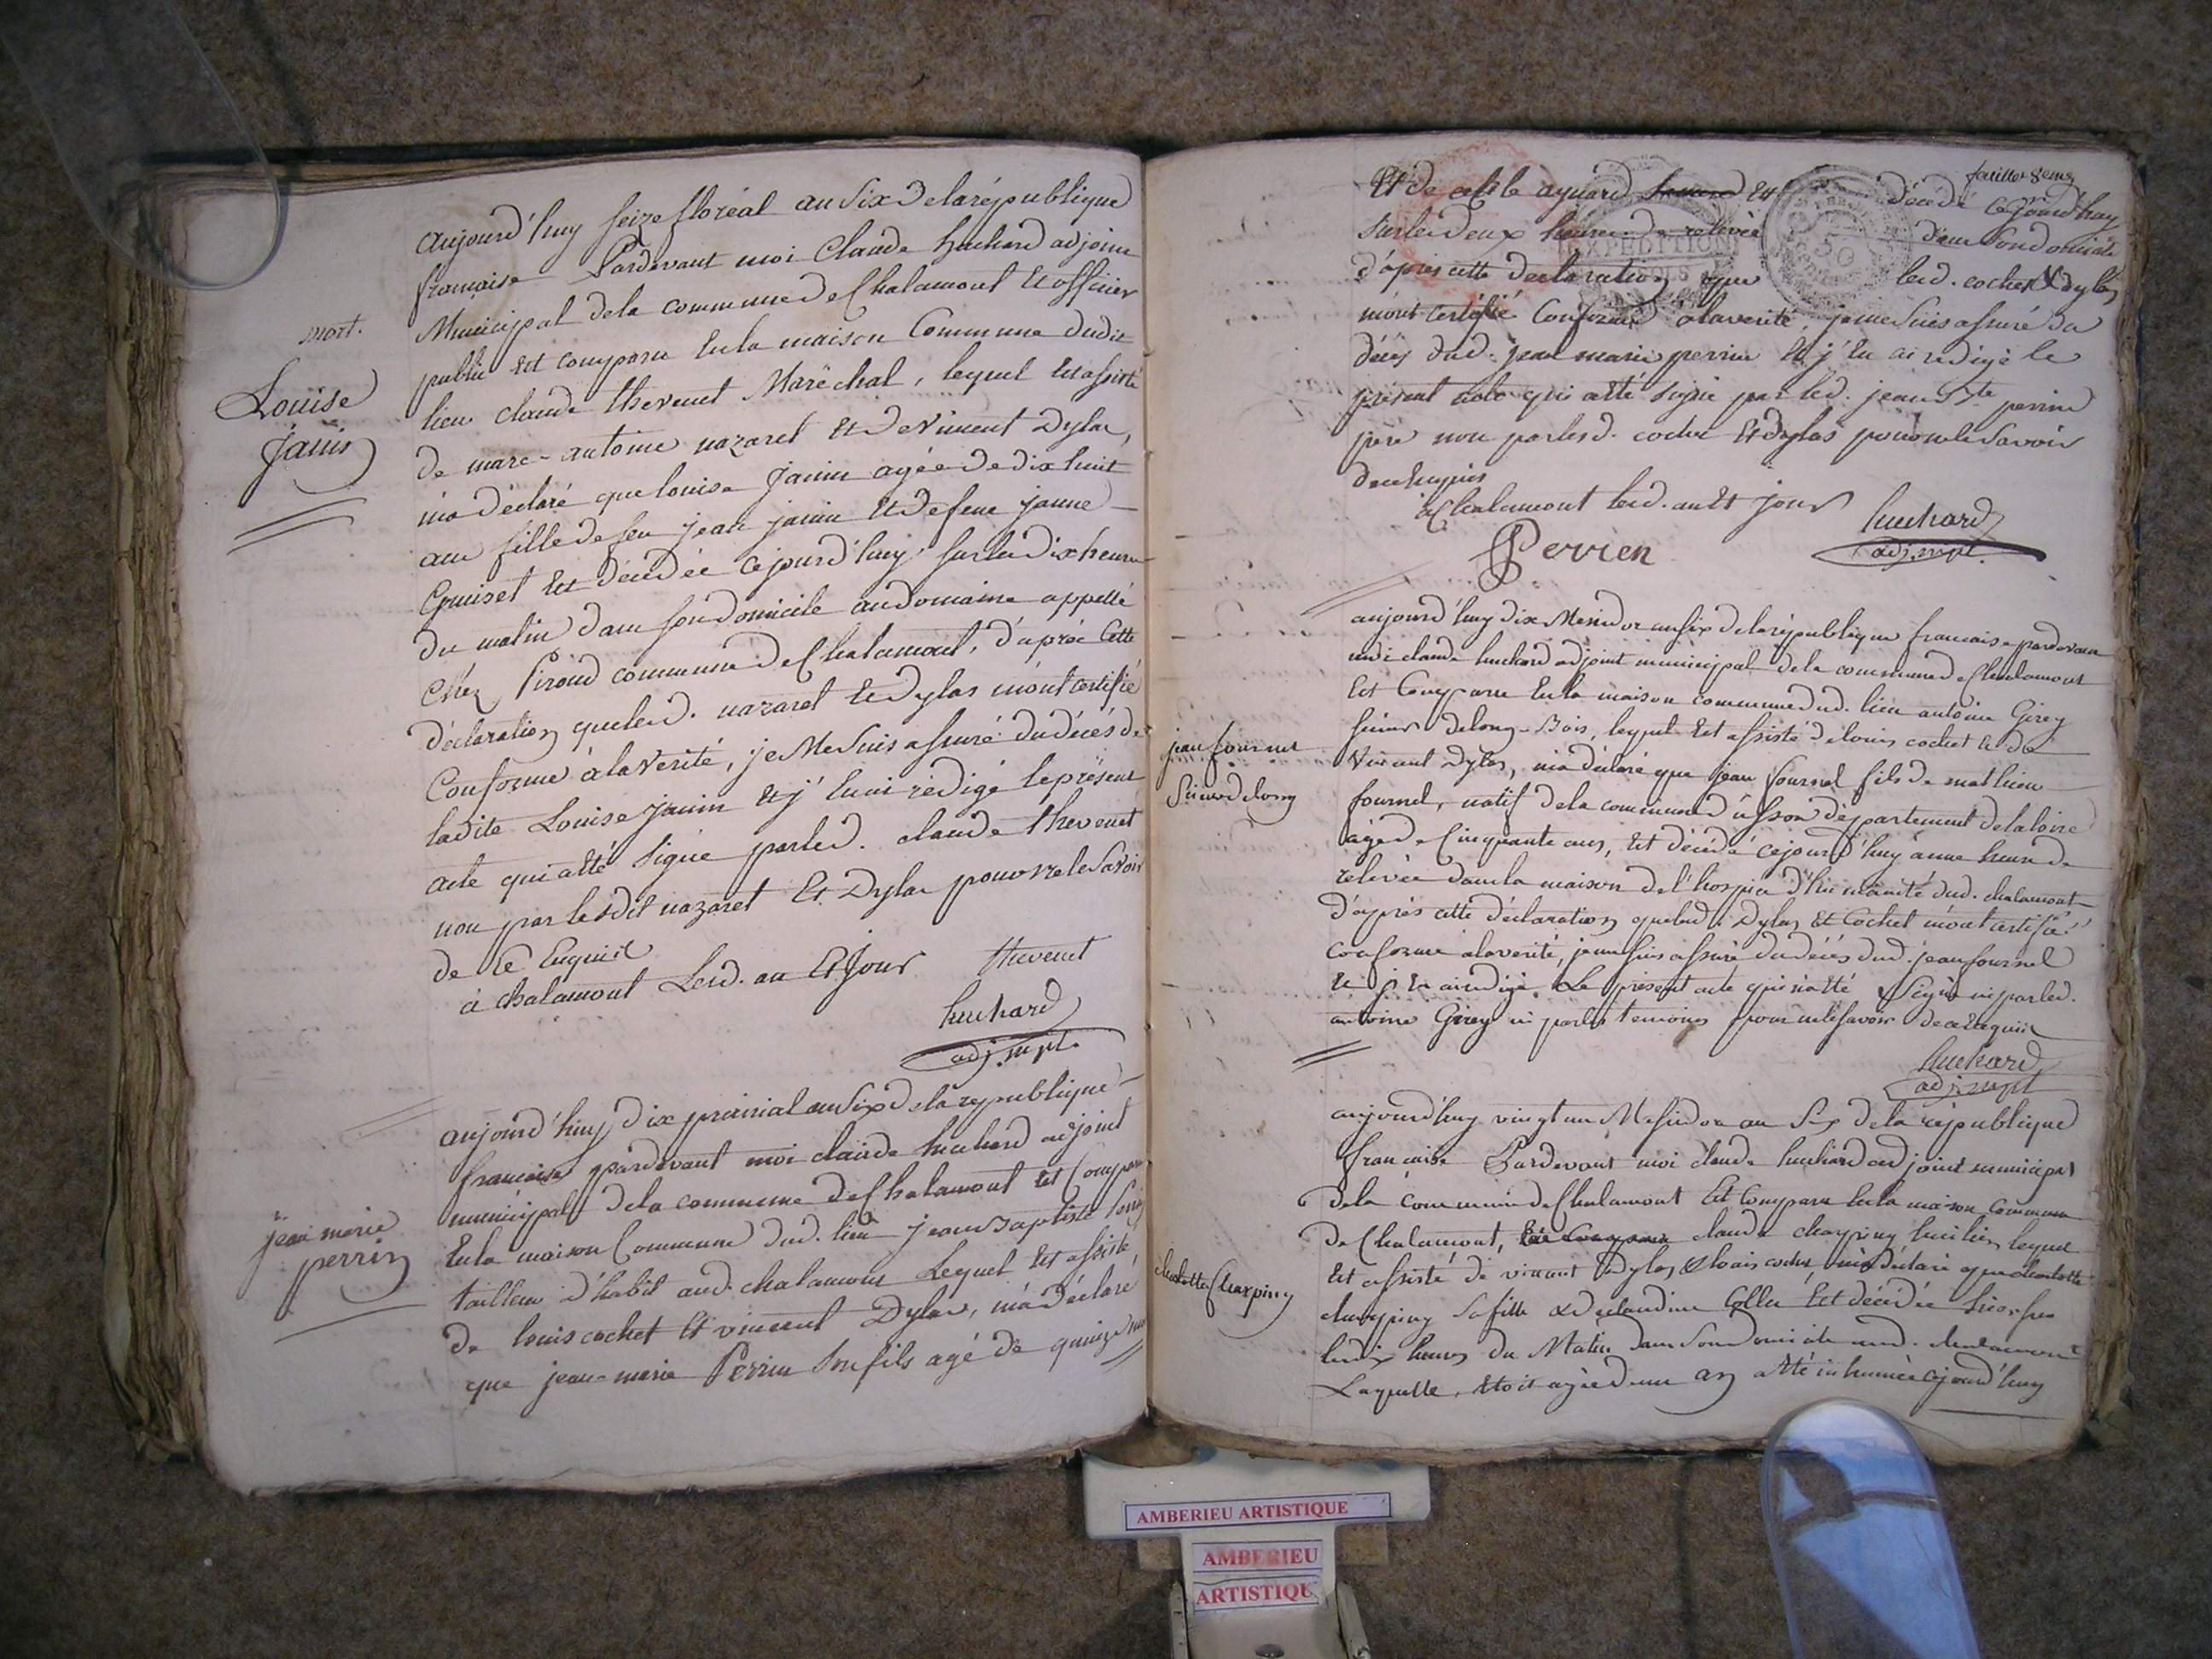 mort.
Louise
Janin
aujourd'huy seize floréal an Six De la république
française Pardevant moi Claude huchard adjoint
Municipal de la commune de Chalamont Et officier
public Est comparu En la maison Commune dudit
lieu claude thevenet Maréchal, lequel Est assisté
de marc-antoine nazaret Et De Vincent Dylas,
m'a déclaré que louise Janin agée de dix huit
ans fille de feu jean janin Et de feue janne
Est décédée cejourd'huy sur les dix heures
du matin dans son domicile au domaine appellé
chéz Piroud commune de Chalamont, d'après Cette
déclaration que lesd. nazaret et Dylas m'ont certifié
Conforme à la Verité, je Me Suis assuré du décés de
ladite Louise janin Et j'En ai rédigé le présent
acte qui a été Signé par led. claude thevenet
non par lesdit nazaret Et Dylas pour ne le Savoir
de ce Enquis
à chalamont Lesd. an Et Jour
thevenet
huchard
adj. mpl.
jean marie
perrin
aujourd'huy dix prairial an Six de la république
francaise pardevant moi claude huchard adjoint
municipal de la commune de Chalamont est Comparu
En la maison Commune dud. lieu jean Baptiste
tailleur d'habit aud. chalamont Lequel Est assisté
de louis cochet Et vincent Dylas, m'a déclaré
que jean-marie Perrin Son fils agé de quinze
feuillet 8eme
Et de aynard Est décédé cejourd'huy
Sur les deux heures de relevée dans Son domicile
d'après cette declaration que lesd. cochet & dylas
m'ont certifié Conforme à la verité, je me Suis assuré du
décés dud. jean marie perrin Et j'En ai redigé le
présent acte qui a été signé par led. jean Bte perrin
pere non par lesd. cochet Et dylas pour ne le Savoir
de ce Enquis
à Chalamont lesd. an Et jour
huchard
adj. mpl.
Perrien
EXPEDITION
jean fournel
aujourd'huy dix Messidor an six de la république francaise pardevant
moi claude huchard adjoint municipal de la commune de Chalamont
Est Comparu En la maison commune dud. lieu antoine Girey
de long-Bois, lequel Est assisté de louis cochet et de
Vincent Dylas, m'a déclaré que jean fournel fils de mathieu
fournel, natif de la commune d'usson département de la loire
agé de Cinquante ans, Est décédé cejourd'huy à une heure de
relevée dans la maison de l'hospice d'humanité dud. chalamont
d'après cette déclaration que lesd. Dylas Et Cochet m'ont certifié
conforme à la verité, je me suis assuré du décés dud. jean fournel
et j'En ai redigé Le présent acte qui n'a été Signé ni par led.
antoine Girey ni par les temoins pour ne le savoir de ce Enquis
huchard
adj. mpl
charlotte Charpiny
aujourd'huy vingt un Messidor an Six de la république
française Pardevant moi claude huchard adjoint municipal
de la commune de Chalamont Est Comparu En la maison Commune
de Chalamont, claude charpiny lequel
Est assisté de vincent dylas & louis cochet m'a déclaré que charlotte
charpiny Sa fille & de claudine Est décédée hier sur
les dix heures du Matin dans Son domicile aud. chalamont
Laquelle, étoit agée d'un an a été inhumée cejourd'huy
AMBERIEU ARTISTIQUE
AMBERIEU
ARTISTIQU